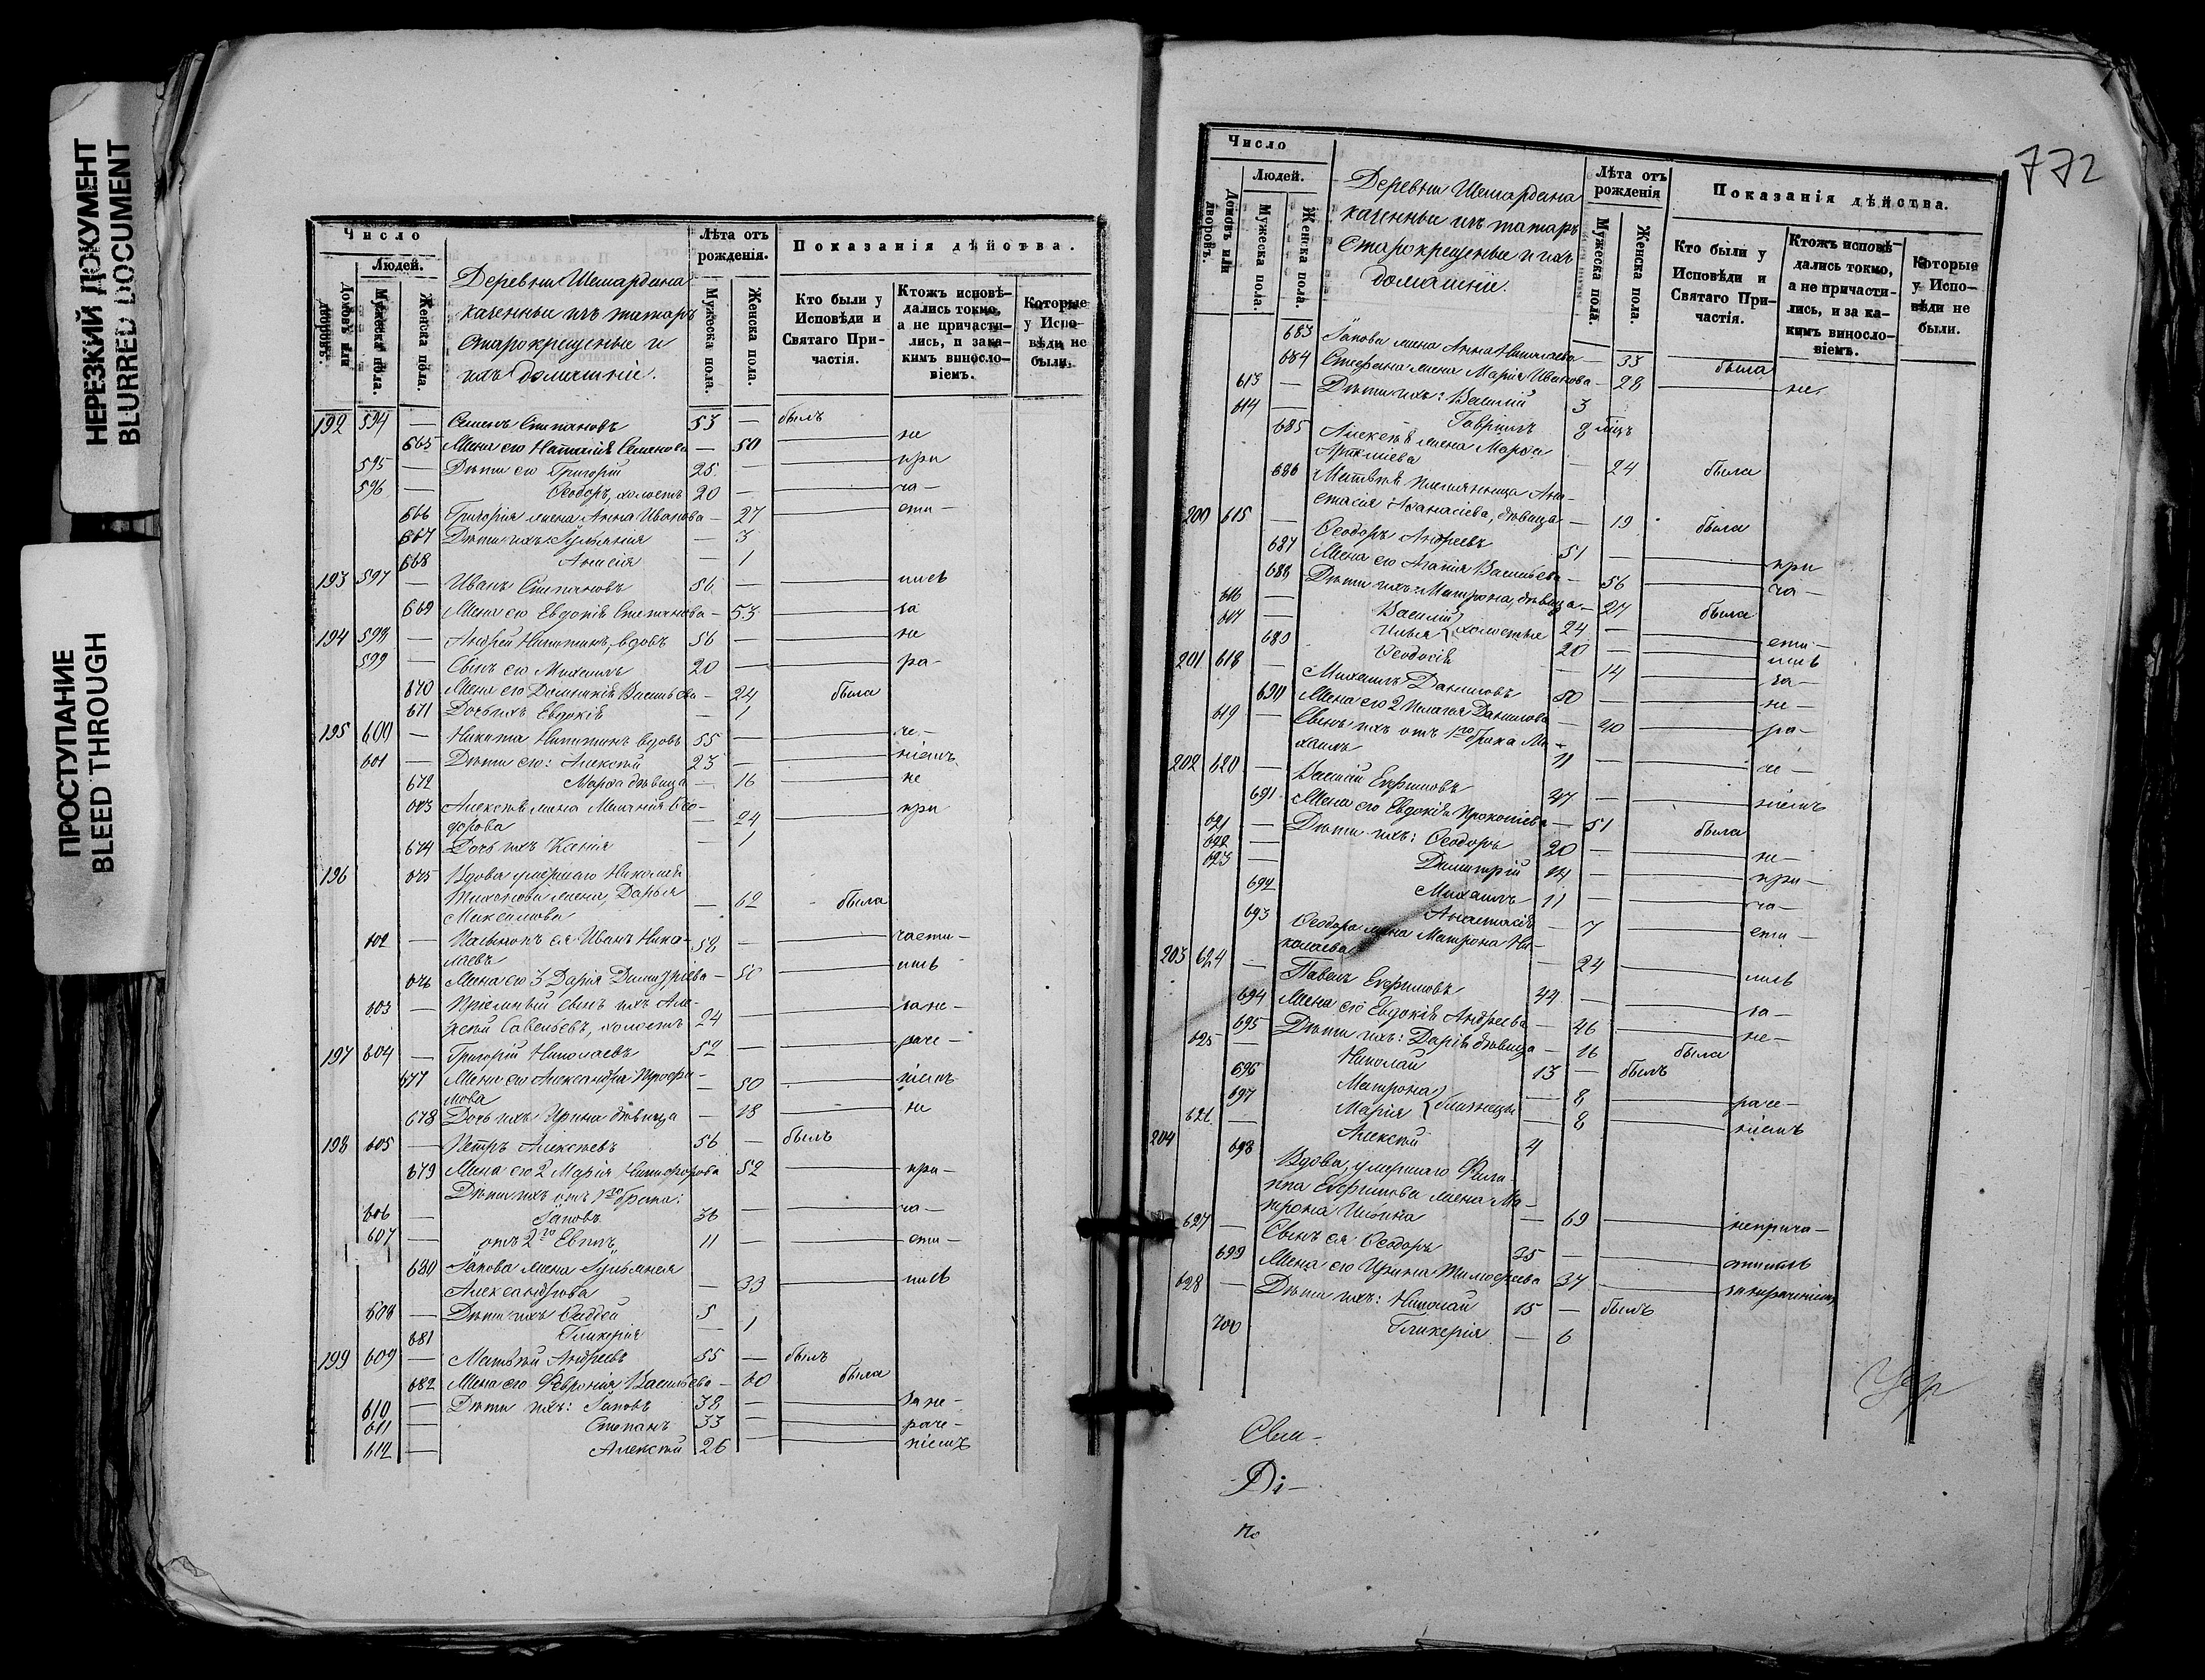 НЕРЕЗКИЙ ДОКУМЕНТ
BLURRED DOCUMENT
ПРОСТУПАНИЕ
BLEED THROUGH
Число
Людей.
Домовъ или дворовъ.
Мужеска пола.
Женска пола.
Деревни Шемардана
казенныи изъ татаръ
Старокрещеные и
ихъ Домашніе.
Лѣта отъ рожденія.
Мужеска пола.
Женска пола.
Показанія дѣйства.
Кто были у Исповѣди и Святаго Причастія.
Ктожъ исповѣдались токмо, а не причастились, и за какимъ винословіемъ.
Которые у Исповѣди не были.
192 594 — Семенъ Степановъ 53 — былъ
665 Жена его Наталія Семенова — 50 — не
595 — Дѣти его Григорій 25 — при
596 — Ѳеодоръ, холостъ 20 — ча-
666 Григорія жена Анна Иванова — 27 — сти-
667 Дѣти ихъ: Іуліанія — 3
668 Анисія — 1
193 597 — Иванъ Степановъ 56 — лись
669 Жена его Евдокія Степанова — 53 — за
194 598 — Андрей Никитинъ, вдовъ 56 — не
599 — Сынъ его Михаилъ 20 — ра-
670 Жена его Домникія Васильева — 24 была
671 Дочь ихъ Евдокія — 1
195 600 — Никита Никитинъ вдовъ 55 — че-
601 — Дѣти его: Алексѣй 23 — ніемъ
672 Марѳа дѣвица — 16 — не
673 Алексѣя жена Меланія Ѳео-
дорова — 24 — при
674 Дочь ихъ Ксенія — 1
196 675 Вдова умершаго Николая
Тихонова жена, Дарья
Максимова — 62 была
602 — Пасынокъ ея Иванъ Нико-
лаевъ 58 — части-
676 Жена его 3 Дарія Димитріева — 50 — лись
603 — Пріемный сынъ ихъ Але-
ксѣй Савельевъ, холостъ 24 — за не-
197 604 — Григорій Николаевъ 52 — раче-
677 Жена его Александра Трофи-
мова — 50 — ніемъ
678 Дочь ихъ Ирина дѣвица — 18 — не
198 605 — Петръ Алексѣевъ 56 — былъ
679 Жена его 2 Марія Никифорова 52 — при-
Дѣти ихъ отъ 1го брака:
606 — Іаковъ 36 — ча-
607 — отъ 2го Евпл 11 — сти-
680 Іакова жена Іуліанія
Александрова — 33 — лись
608 — Дѣти ихъ Ѳаддей 5
681 Гликерія — 1
199 609 — Матвѣй Андреевъ 55 — былъ
682 Жена его Февронія Васильева — 60 была
610 — Дѣти ихъ: Іаковъ 38 — за не-
611 — Степанъ 33 — раче-
612 — Алексѣй 26 — ніемъ
772
Число
Людей.
Домовъ или дворовъ.
Мужеска пола.
Женска пола.
Деревни Шемардана
казенныи изъ татаръ
Старокрещеные и ихъ
домашніе.
Лѣта отъ рожденія
Мужеска пола.
Женска пола.
Показанія дѣйства.
Кто были у Исповѣди и Святаго Причастія.
Ктожъ исповѣдались токмо, а не причастились, и за какимъ винословіемъ.
Которые у Исповѣди не были.
683 Іакова жена Анна Николаева — 35 была
684 Стефана жена Марія Иванова — 28 — не
613 — Дѣти ихъ: Василій 3
614 — Гавріилъ 8 мѣц
685 Алексѣя жена Марѳа
— 24 была
686 Матвѣя племянница Ана-
стасія Аѳанасіева, дѣвица — 19 была
200 615 — Ѳеодоръ Андреевъ 51 — при
687 Жена его Агапія Васильева — 56 — ча-
688 Дѣти ихъ: Матрона, дѣвица — 27 была
616 — Василій 24 — сти-
617 — Илья } холостые 20 — лись
689 Ѳеодосія — 14 — за-
201 618 — Михаилъ Даниловъ 50 — не-
690 Жена его 2 Пелагея Данилова — 40 — ра-
619 — Сынъ ихъ отъ 1го брака Ми-
хаилъ 11 — че-
202 620 — Василій Ефимовъ 47 — ніемъ
691 Жена его Евдокія Прокопіева — 51 была
621 — Дѣти ихъ: Ѳеодоръ 20 — не-
622 — Димитрій 14 — при-
623 — Михаилъ 11 — ча-
692 Анастасія — 7 — сти-
693 Ѳеодора жена Матрона Ни-
колаева — 24 — лись
203 624 — Павелъ Ефимовъ 44 — за-
694 Жена его Евдокія Андреева — 46 — не-
695 Дѣти ихъ: Дарія дѣвица — 16 была
625 — Николай 13 — былъ
696 Матрона — 8 — раче-
697 Марія } близнецы — 8 — ніемъ
626 — Алексѣй 4
204 698 Вдова, умершаго Фили-
ппа Ефимова жена Ма-
трона Ильина — 69 — неприча-
627 — Сынъ ея: Ѳеодоръ 35 — стились
699 Жена его Ирина Тимоѳеева 37 — за нераченіемъ
628 — Дѣти ихъ: Николай 15 — былъ
700 Гликерія — 6
Свя-
Ді-
По